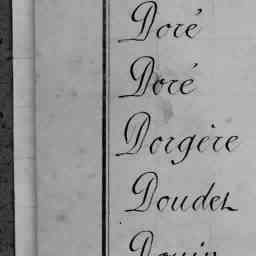 Doré
Doré
Dorgère
Doudet
Douin